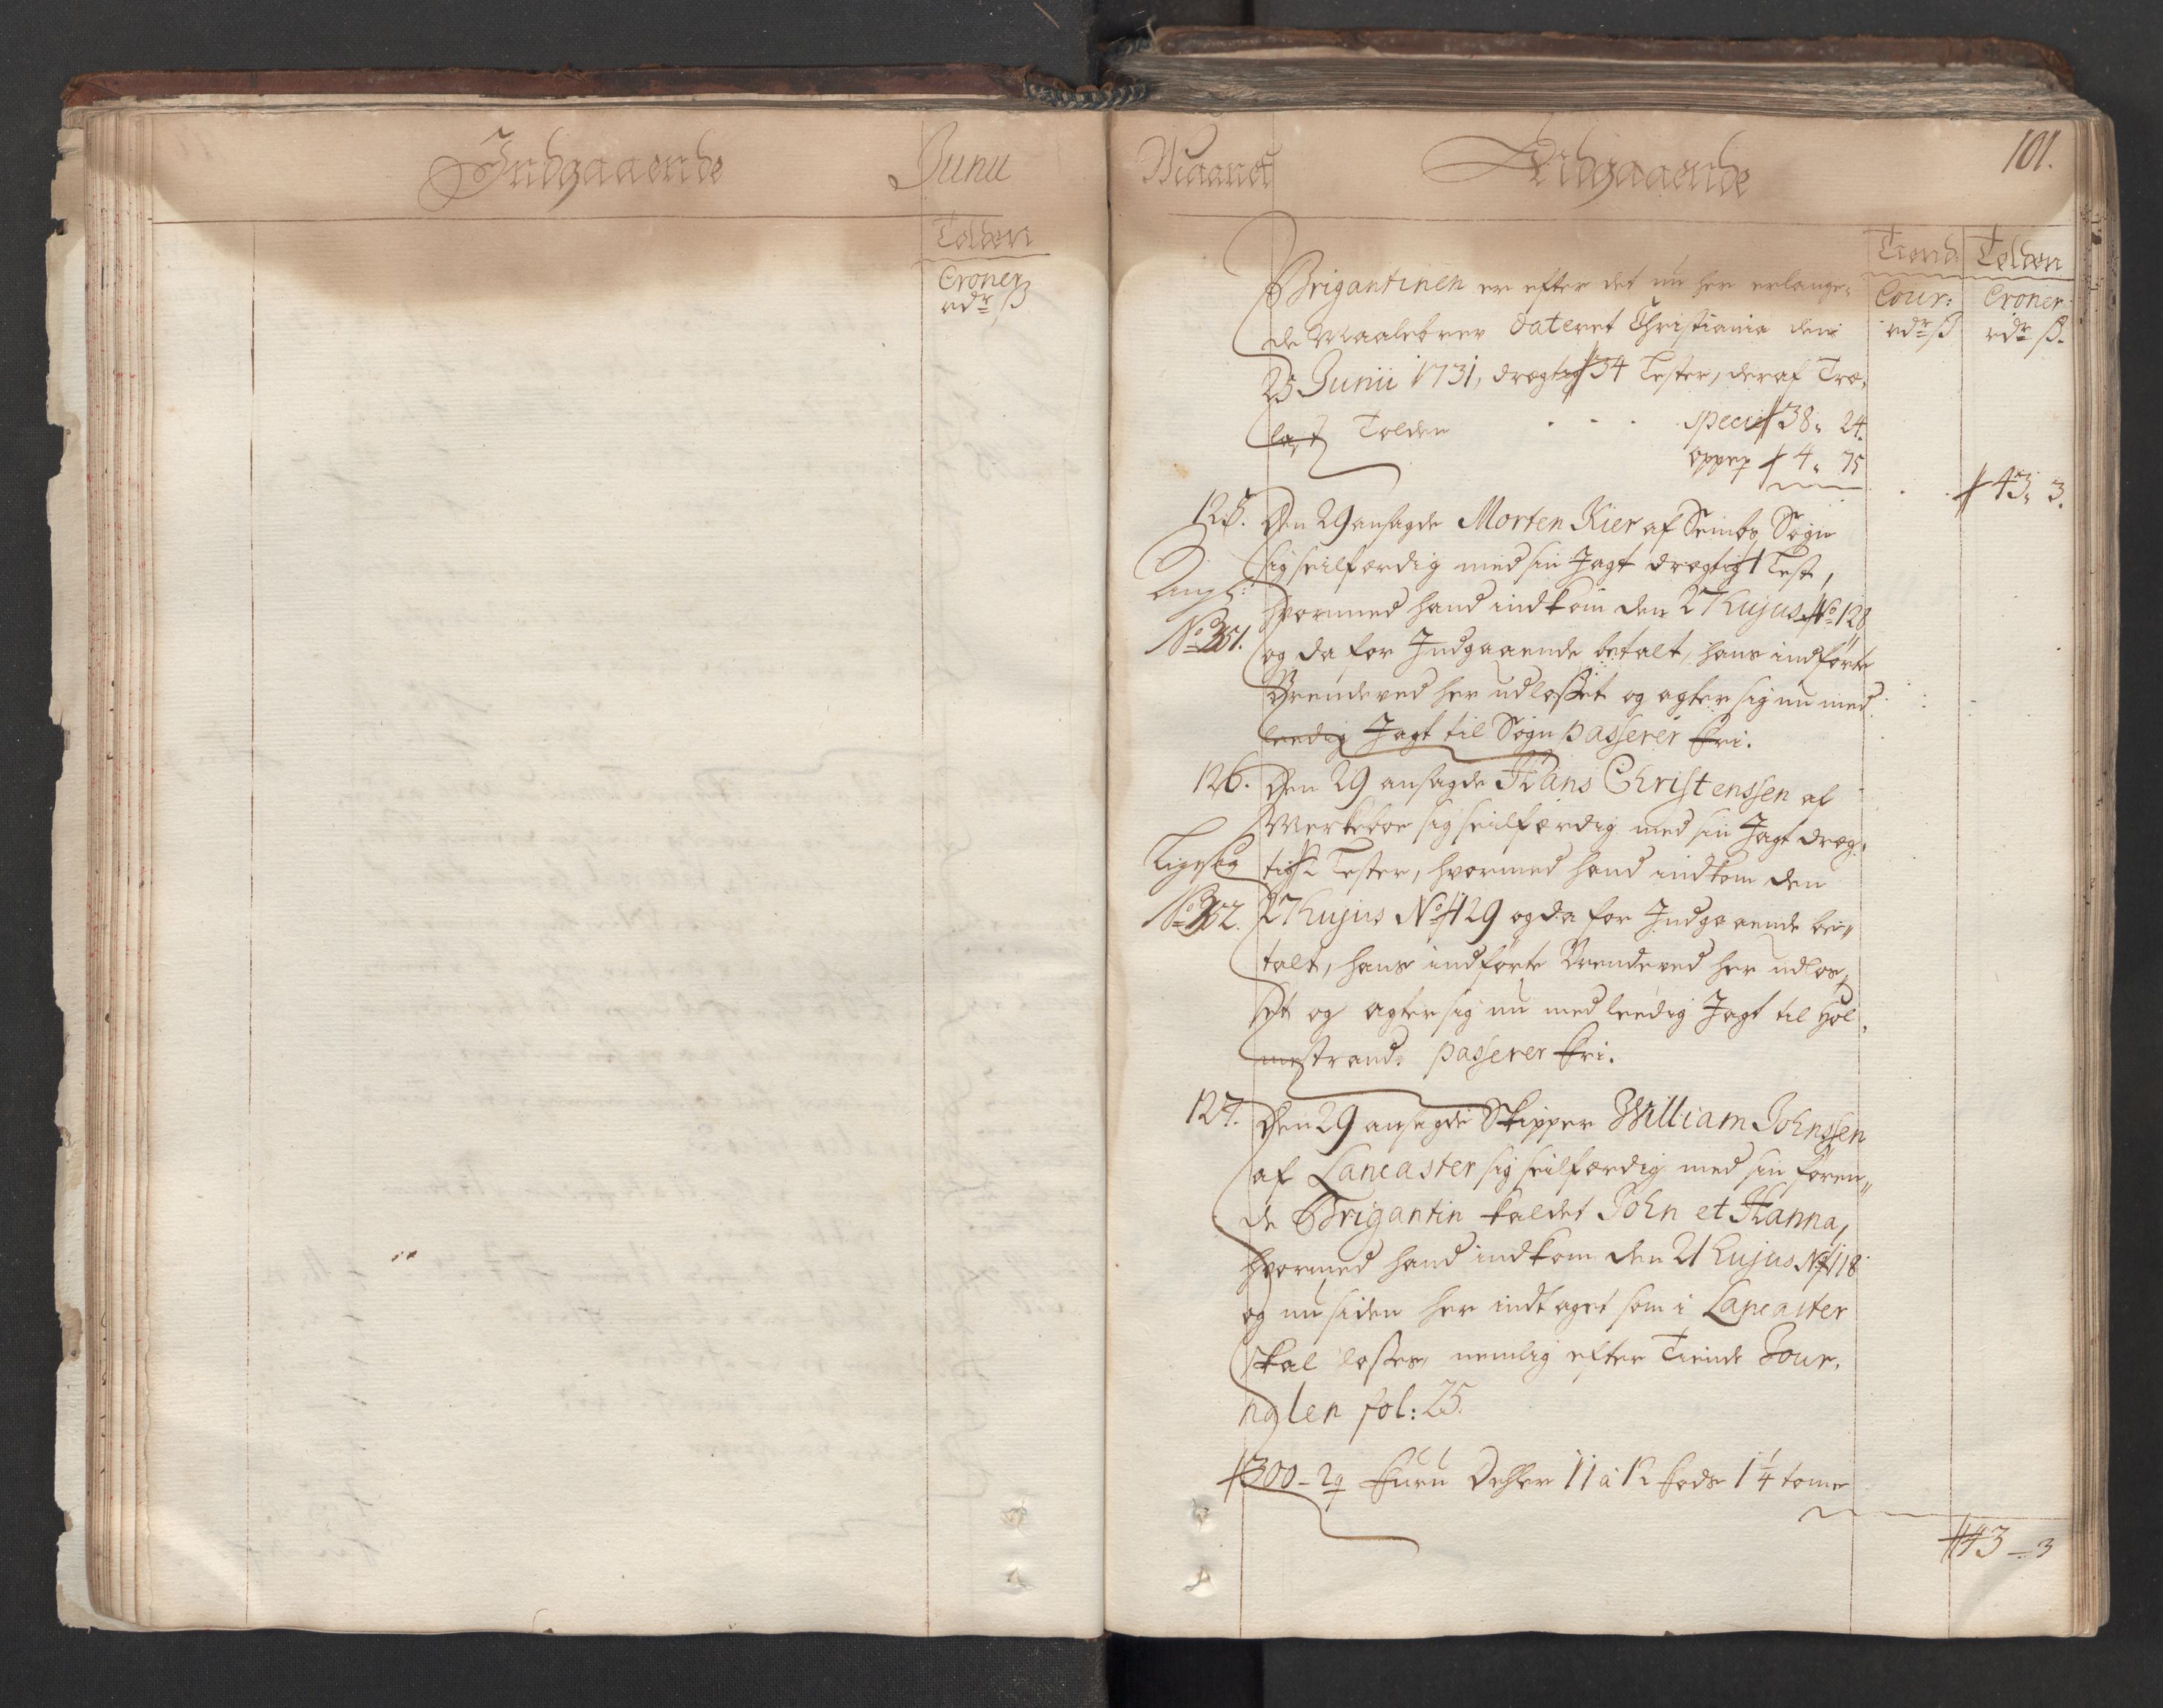 Indgaaende
Junii
Tolden
Croner
rdr ß
Maanet
Udgaaende
101.
Tiend
Tolden
Cour:
Croner
rdr ß
rdr ß.
Brigantinen er efter det nu her erlange-
de Maalebrev dateret Christiania den
25 Junii 1731, drægtig 34 Lester, deraf Træ-
last Tolden . . . specie 38„ 24.
oppep 4„ 75
43„ 3.
125. Den 29 ansagde Morten Kier af Sembs Sogn
sig seilfærdig med sin Jagt drægtig 1 Lest,
hvormed hand indkom den 27 hujus No 128
No 351. og da for Indgaaende betalt, hans indførte
Brendeved her udlosset og agter sig nu med
leedig Jagt til Sogn passerer fri.
126. Den 29 ansagde Hans Christenssen af
sig seilfærdig med sin Jagt dræg-
tig 2 Lester, hvormed hand indkom den
No 352. 27 hujus No 129 og da for Indgaaende be„
talt, hans indførte Brendeved her udlos-
set og agter sig nu med leedig Jagt til Hol-
mestrand. passerer fri.
127. Den 29 ansagde Skipper William Johnssen
af Lancaster sig seilfærdig med sin føren„
de Brigantin kaldet John et Hanna,
hvormed hand indkom den 21 hujus No 118
og nu siden her indtaget som i Lancaster
skal losses, nemlig efter Tiende Jour-
nalen fol: 25.
1300 - 29 Furu Dehler 11 a 12 Fods 1 1/4 tome
43 - 3